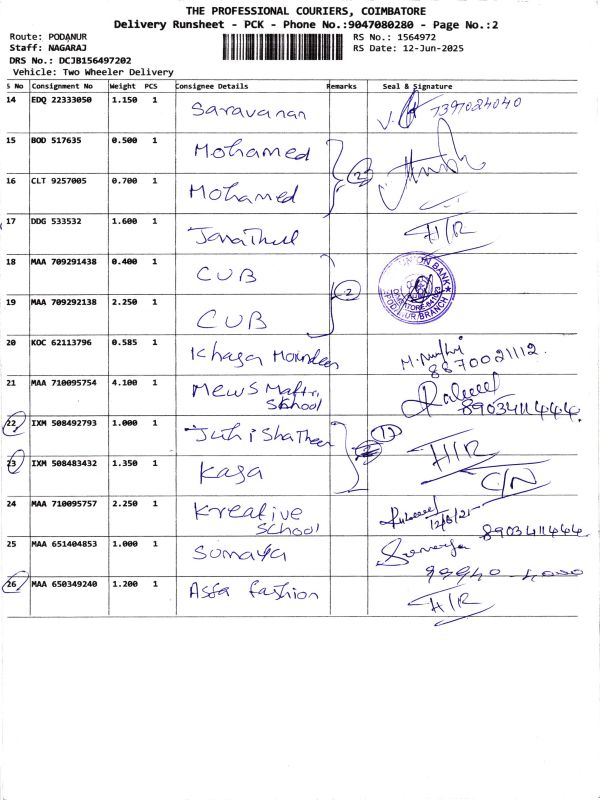 THE PROFESSIONAL COURIERS, COIMBATORE
Delivery Runsheet - PCK - Phone No.:9047080280 - Page No.:2
Route: PODANUR
RS No.: 1564972
Staff: NAGARAJ
RS Date: 12-Jun-2025
DRS No.: DCJB156497202
Vehicle: Two Wheeler Delivery
S No Consignment No Weight PCS Consignee Details Remarks Seal & Signature
14 EDQ 22333050 1.150 1 Saravanan 7397024040
15 BOD 517635 0.500 1 Mohamed
16 CLT 9257005 0.700 1 Mohamed 2
17 DDG 533532 1.600 1 H/R
18 MAA 709291438 0.400 1 CUB
19 MAA 709292138 2.250 1 CUB 2
20 KOC 62113796 0.585 1 8870021112.
21 MAA 710095754 4.100 1 School 8903411444
22 IXM 508492793 1.000 1 H/R
23 IXM 508483432 1.350 1 Kaga C/N
24 MAA 710095757 2.250 1 Kreative School 8903411444
25 MAA 651404853 1.000 1 Sumaya
26 MAA 650349240 1.200 1 Assa fashion H/R